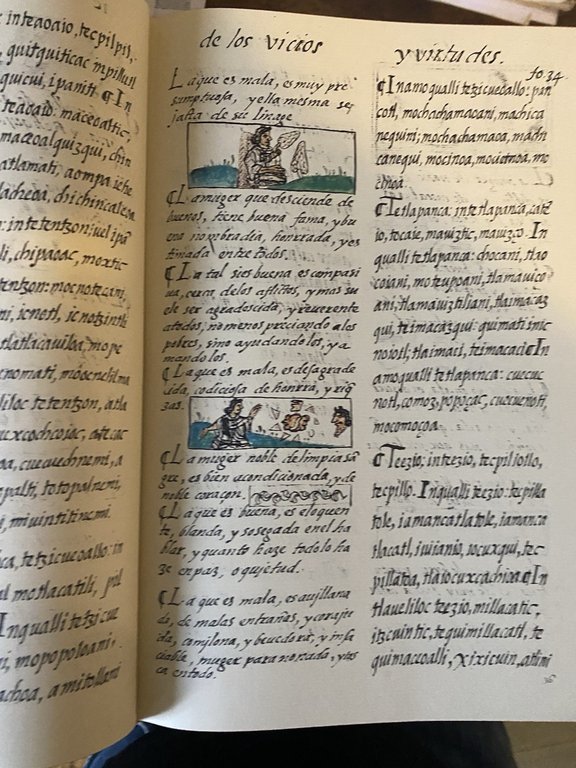 inteaoaio, tecpilpil,
quitquiticac
quicui, ipanití ¶In
maceoaltic,
maceoalquizqui, chin
atlamati, aompa
chichincaleoa
: intetentzon: uel ipã
li, chipaoac, moxtic
tentzon: mocnotecani,
ni, icnotl, icnotzintli
mope
cnomati,
liloc tetentzon, atla
uxcochcoioc,
oa, cuecuechnemi, a
tpalti, totopalnemi,
i, miuintitinemi
ca, tetzicueoallo: in
al motlacatili, pil
Inqualli tetzicue
ni, mopopoloani,
achoa, amitollani
de los vicios
y virtudes.
fo. 34
La que es mala, es muy pre
sumptuosa, y ella mesma se
jacta de su linage
¶La muger que desciende de
buenos, tiene buena fama, y bu
ena nombradia, honrrada, y es
timada entre todos.
¶La tal si es buena es compasi
ua, cerca de los aflictos, y mas su
ele ser agradescida, y reuerente
a todos, no menos preciando a los
pobres, sino ayudandolos, y a
mandolos.
¶La que es mala, es desagrade
cida, codiciosa de honrra, y riq̃
zas.
¶La muger noble de limpia sã
gre, es bien acondicionada, y de
noble coraçon.
¶La que es buena, es eloquen
te, blanda, y sosegada en el ha
blar, y quanto haze todo lo ha
ze en paz, o quietud.
¶La que es mala, es auillana
da, de malas entrañas, y coraju
da, comilona, y beuedora, y insa
ciable, muger para no nada, y tos
ca en todo.
¶Inamo qualli tetzicueoallo: pan
cotl, mochachamaoani, machica
nequini; mochachamaoa, mach
canequi, mocinoa, mouicinoa, mo
cinoa.
¶Tetlapanca: intetlapanca, catẽ
io, tocaie, mauiztic, mauizço. In
qualli tetlapanca: chocani, tlao
coiani, motenpoani, tlamauico
ani, tlamauiztiliani, tlaimacaz
qui, teimacazqui: quimati inic
noiotl; tlaimaci, teimacaci ¶In
amo qualli tetlapanca: cuecue
notl, comoz, popoçac, cuecuenoti,
mocomoçoa.
¶Teezio; inteezio, tecpiliollo,
tecpillo. Inqualli teezio: tecpilla
tole, iamancatlatole, iamanca
tlacatl, iuiianio, iocuxqui, tec
pillatoa, tlaiocuxcachioa ¶In
tlaueliloc teezio, millacatic,
itzcuintic, tequimillacatl, te
quimaceoalli, xixicuin, atlini